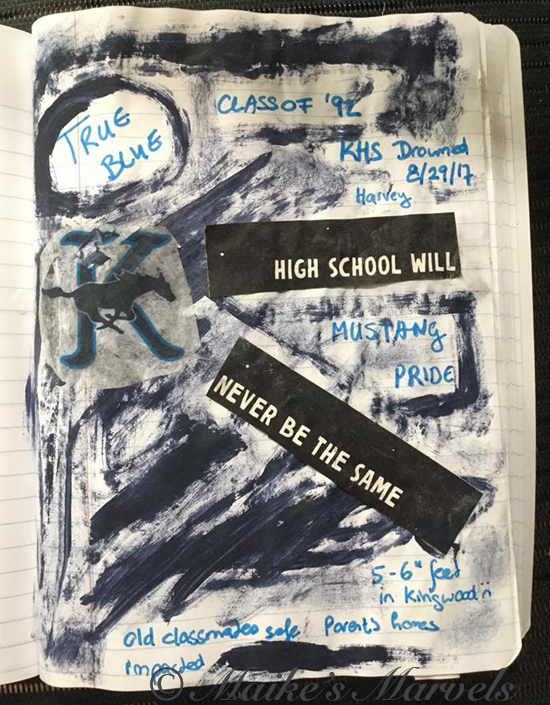 CLASS OF '92
TRUE
BLUE
KHS Drowned
8/29/17
Harvey
K
HIGH SCHOOL WILL
MUSTANG
PRIDE
NEVER BE THE SAME
5-6" feet
in Kingwood
old classmates safe Parents homes
impacted
© Maike's Marvels